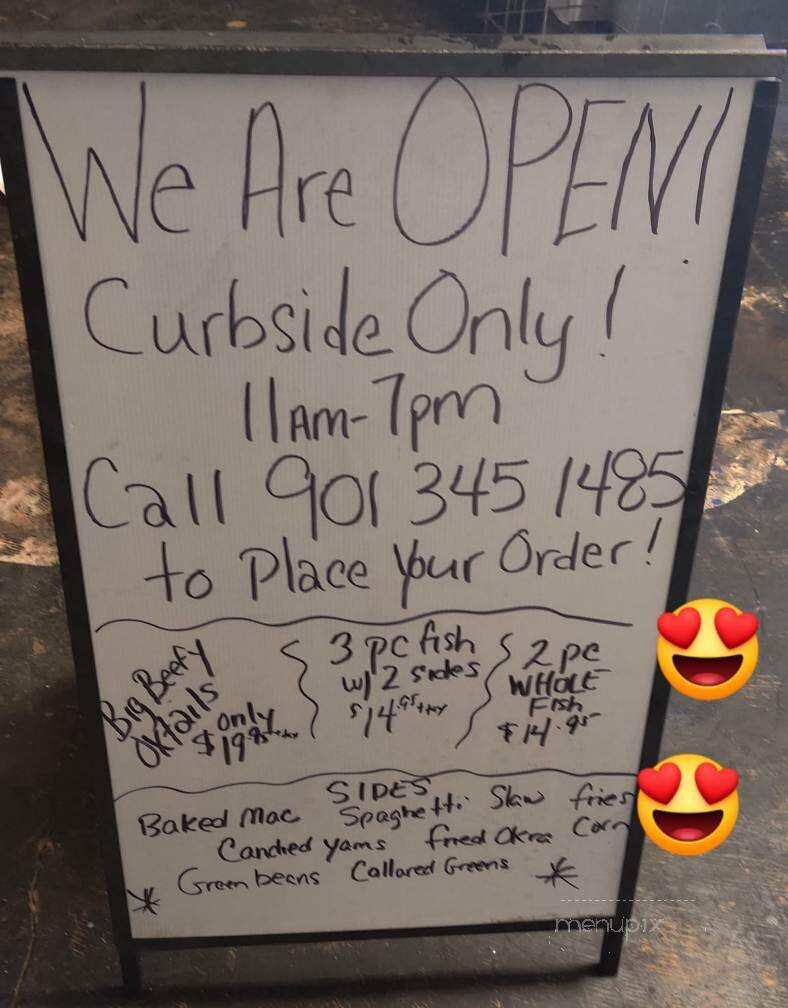 We Are OPEN!
Curbside Only!
11AM-7pm
Call 901 345 1485
to Place Your Order!
Big Beefy
Oxtails
only
$19.95+tax
3 pc fish
w/ 2 sides
$14.95+tax
2 pc
WHOLE
Fish
$14.95
SIDES
Baked Mac Spaghetti Slaw fries
Candied Yams fried Okra Corn
Green beans Collared Greens
menupix